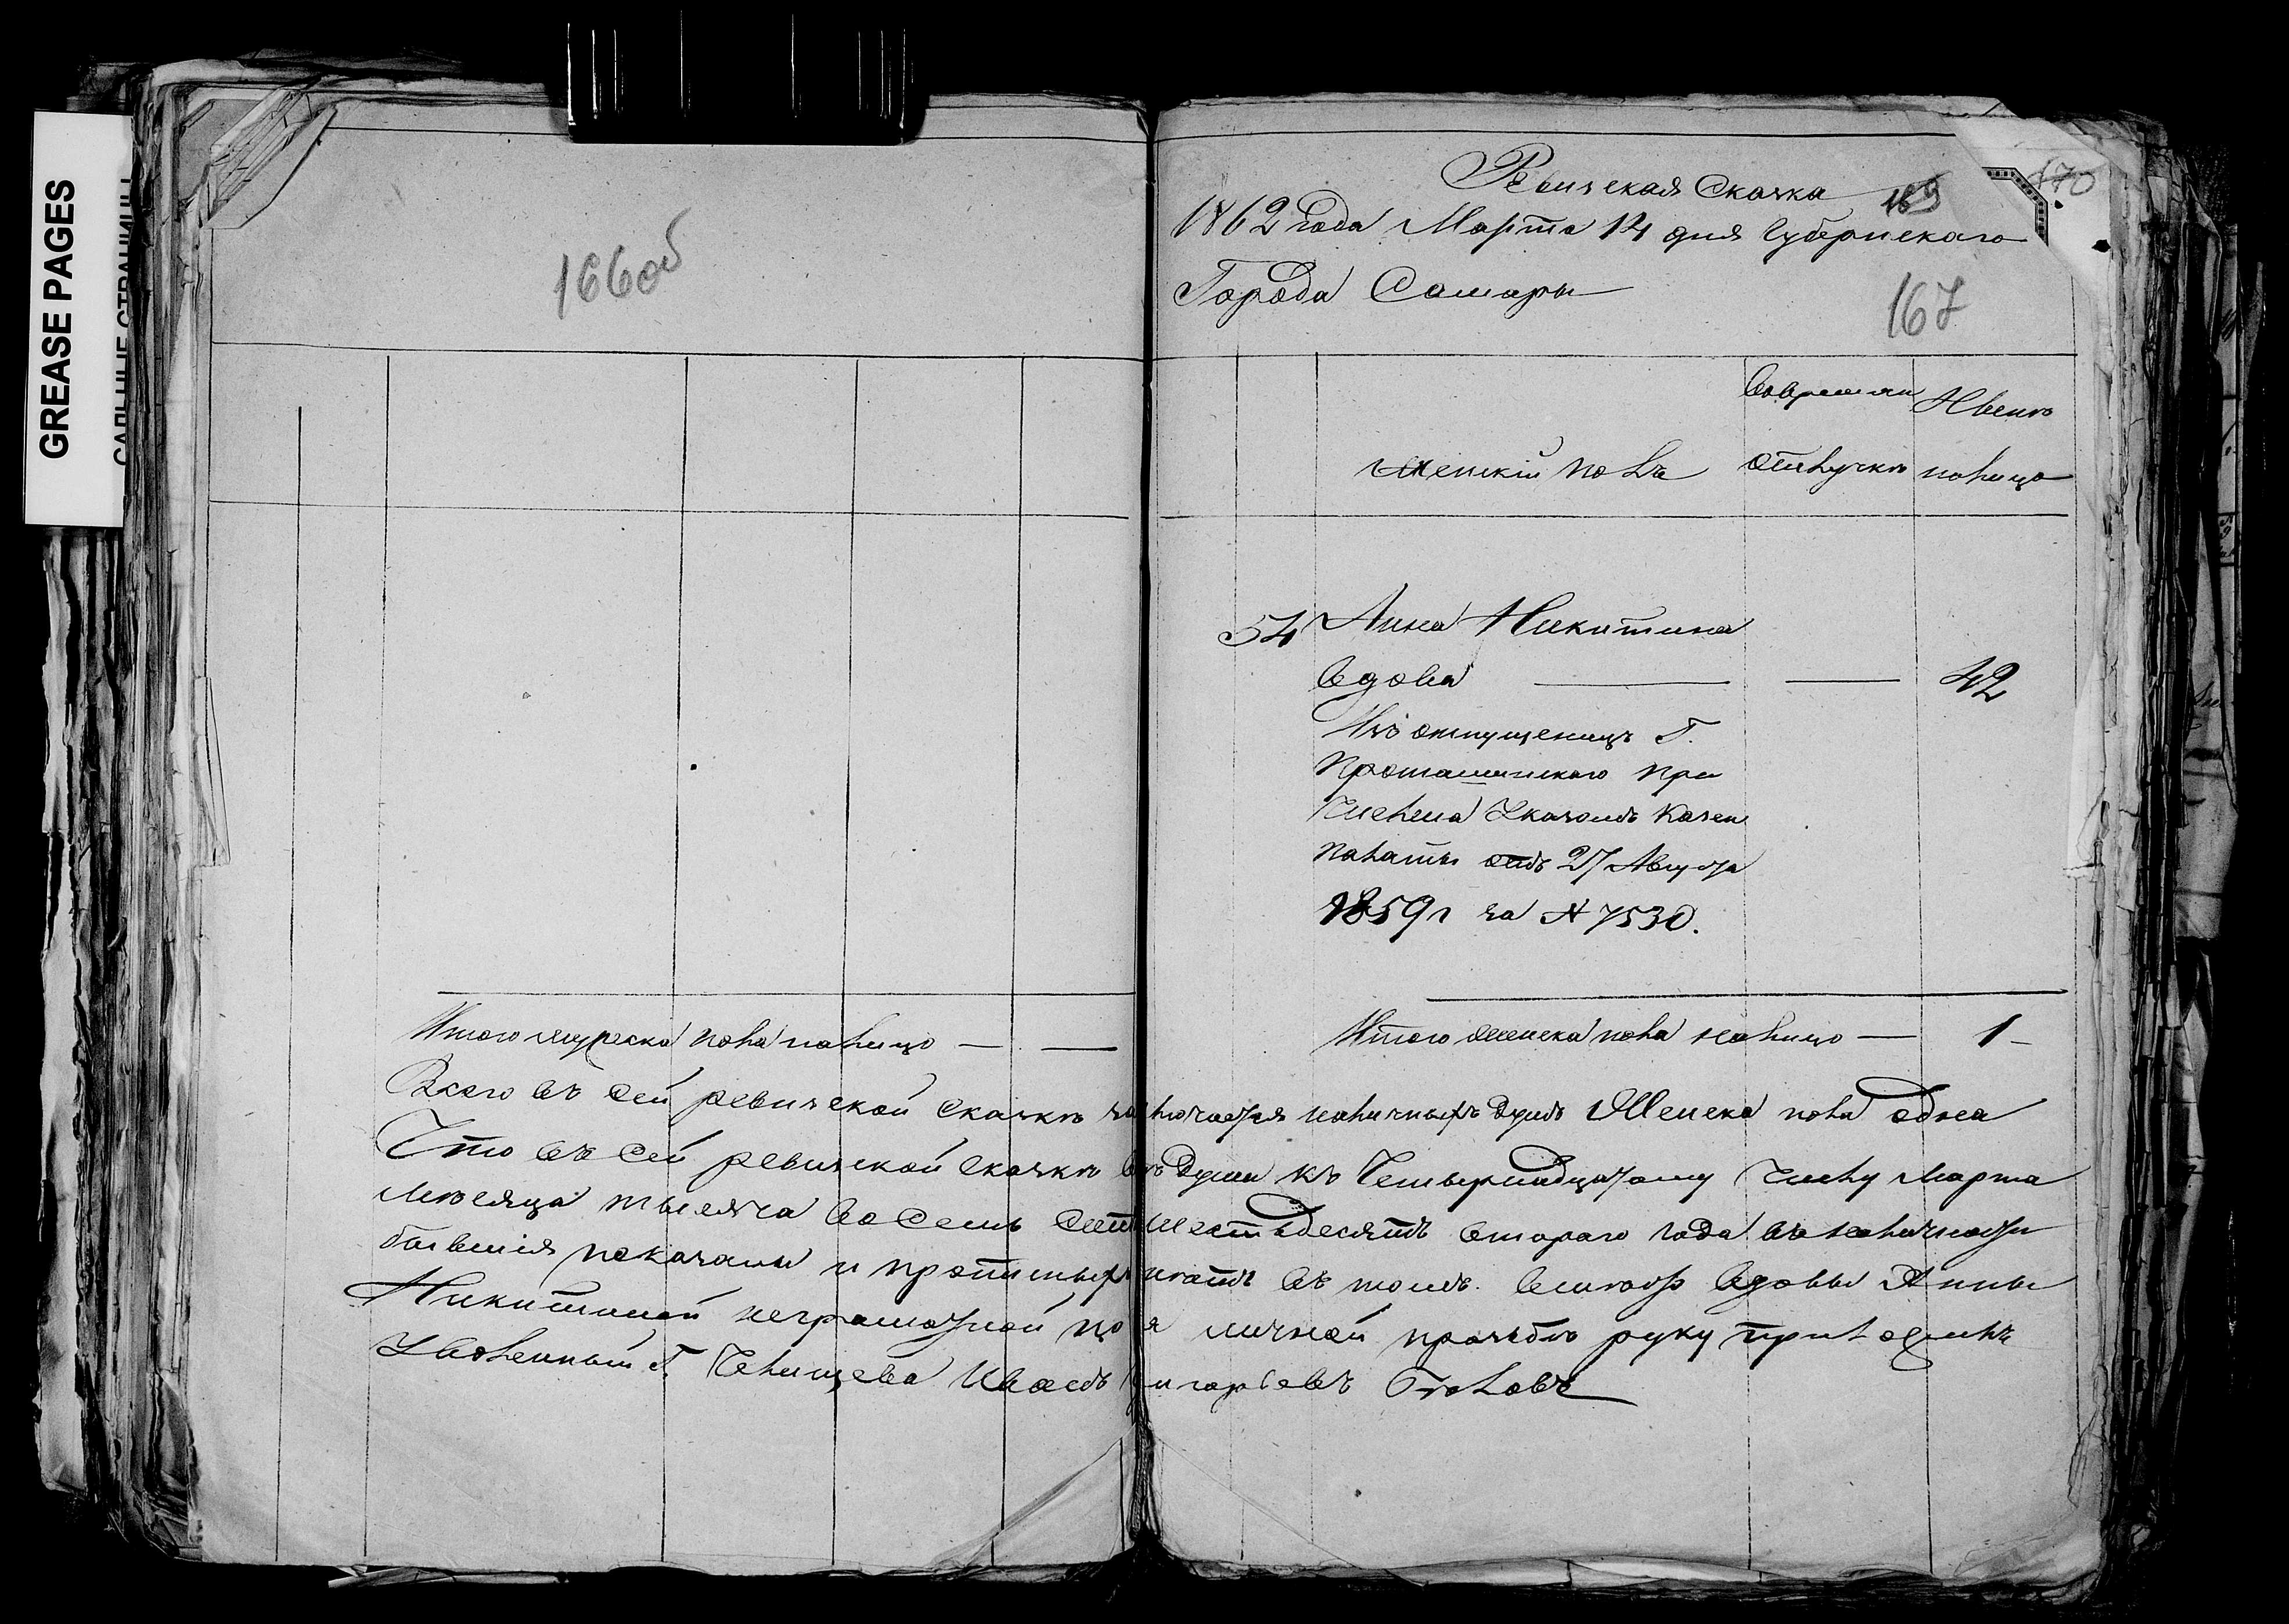 GREASE PAGES
166об
Ревизская Сказка
169
170
1862 года Марта 14 дня Губернскаго
Города Самары
167
Женскій полъ
Вовремян отлучкѣ
Ныне налицо
54 Анна Никитина
вдова 42
Изъ отпущеницъ Г.
При
числена Указомъ Казен
палаты отъ 27 Августа
1859 г за № 7530.
Итого мужеска пола налицо — —
Итого женска пола налицо — 1 –
Всего въ сей ревизской сказкѣ заключается наличныхъ душъ Женска пола одна
Что въ сей ревизской сказкѣ всѣ души къ Четырнадцатому числу Марта
Мѣсяца тысяча восемь сотъ шестьдесятъ втораго года въ наличности
бывшія показаны и прописныхъ нѣтъ въ томъ вмѣсто вдовы Анны
Никитиной неграматной по ея личной прозьбѣ руку приложилъ
Уволенный Г. Челищева Иванъ Григорьевъ Бѣловъ